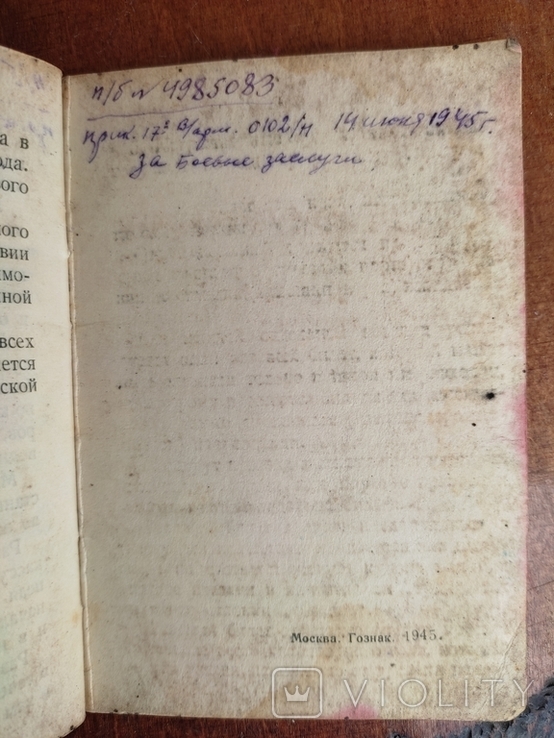 п/б № 4985083
прик. 17й В/арм. 0102/н 14 июня 1945 г.
за боевые заслуги
а в
ода.
ого
ного
вии
имо-
нной
всех
ется
ской
Москва. Гознак. 1945.
VIOLITY